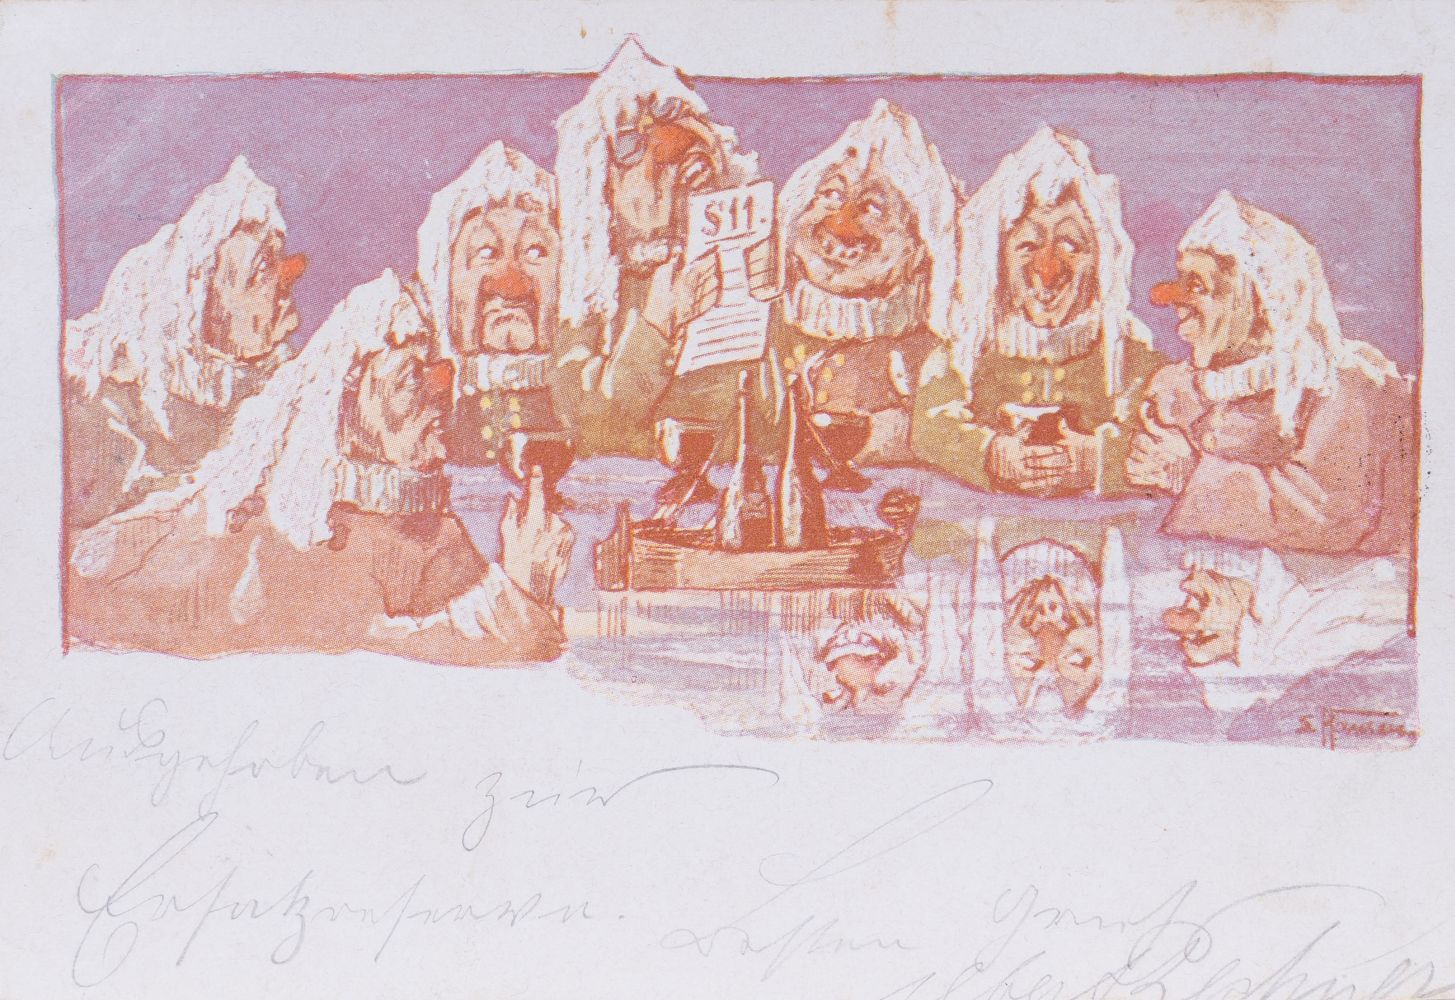 § 11.
Ausgehoben zur
Ersatzreserve.
Besten Gruß